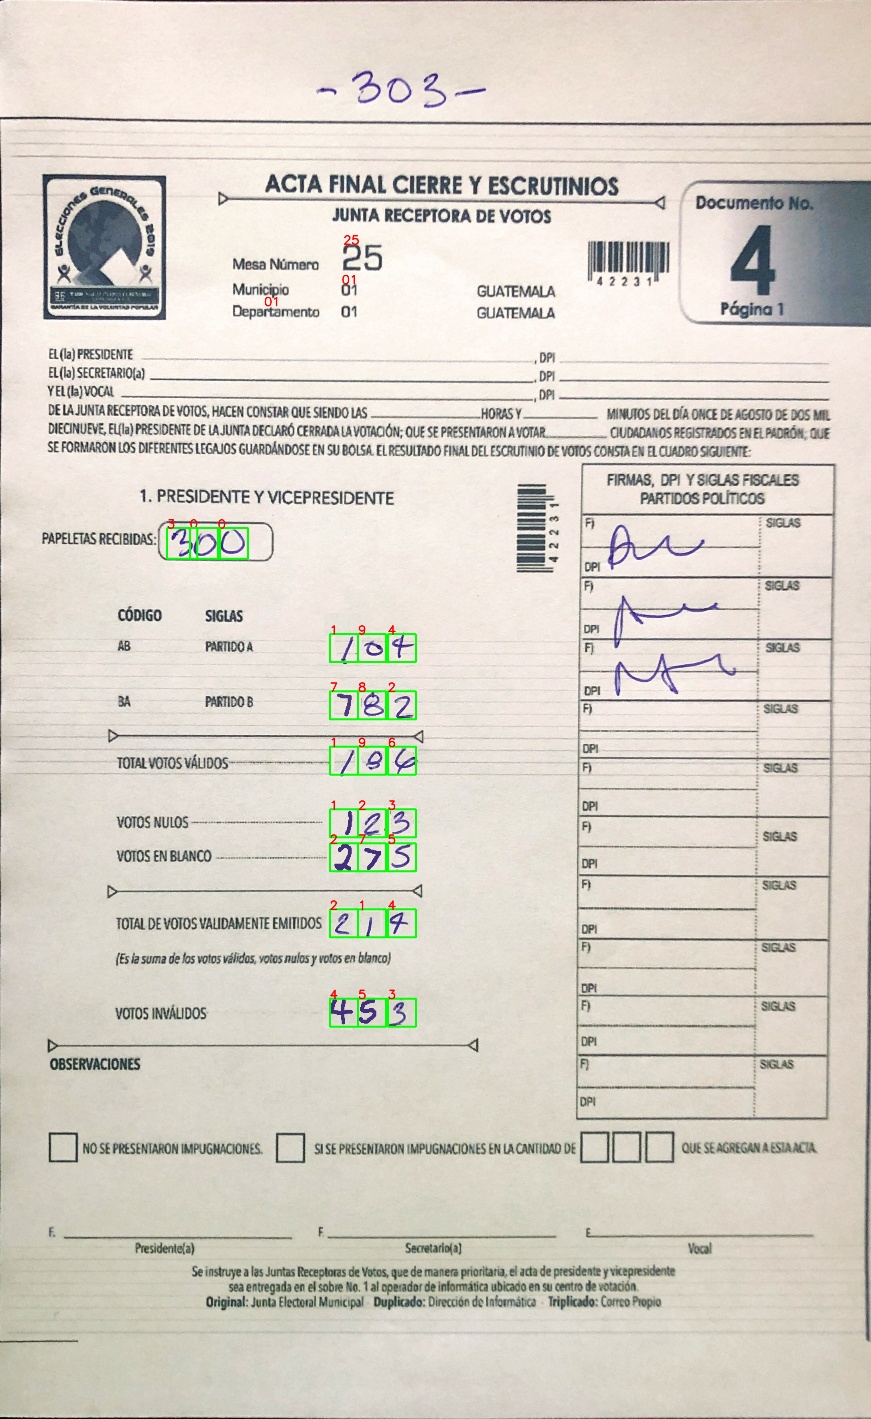 -303-
ELECCIONES GENERALES 2019
ACTA FINAL CIERRE Y ESCRUTINIOS
JUNTA RECEPTORA DE VOTOS
Documento No.
4
Página 1
25
Mesa Número 25
01
Municipio 01 GUATEMALA
01
Departamento 01 GUATEMALA
42231
EL (la) PRESIDENTE , DPI
EL (la) SECRETARIO(a) , DPI
Y EL (la) VOCAL , DPI
DE LA JUNTA RECEPTORA DE VOTOS, HACEN CONSTAR QUE SIENDO LAS HORAS Y MINUTOS DEL DÍA ONCE DE AGOSTO DE DOS MIL
DIECINUEVE, EL(la) PRESIDENTE DE LA JUNTA DECLARÓ CERRADA LA VOTACIÓN; QUE SE PRESENTARON A VOTAR CIUDADANOS REGISTRADOS EN EL PADRÓN; QUE
SE FORMARON LOS DIFERENTES LEGAJOS GUARDÁNDOSE EN SU BOLSA. EL RESULTADO FINAL DEL ESCRUTINIO DE VOTOS CONSTA EN EL CUADRO SIGUIENTE:
1. PRESIDENTE Y VICEPRESIDENTE
42231
3 0 0
PAPELETAS RECIBIDAS: 300
CÓDIGO SIGLAS
1 9 4
AB PARTIDO A 104
7 8 2
BA PARTIDO B 782
1 9 6
TOTAL VOTOS VÁLIDOS 186
1 2 3
VOTOS NULOS 123
2 7 5
VOTOS EN BLANCO 275
2 1 4
TOTAL DE VOTOS VALIDAMENTE EMITIDOS 214
(Es la suma de los votos válidos, votos nulos y votos en blanco)
4 5 3
VOTOS INVÁLIDOS 453
OBSERVACIONES
FIRMAS, DPI Y SIGLAS FISCALES
PARTIDOS POLÍTICOS
F) SIGLAS
DPI
F) SIGLAS
DPI
F) SIGLAS
DPI
F) SIGLAS
DPI
F) SIGLAS
DPI
F) SIGLAS
DPI
F) SIGLAS
DPI
F) SIGLAS
DPI
F) SIGLAS
DPI
F) SIGLAS
DPI
NO SE PRESENTARON IMPUGNACIONES. SI SE PRESENTARON IMPUGNACIONES EN LA CANTIDAD DE QUE SE AGREGAN A ESTA ACTA.
F. F. F.
Presidente(a) Secretario(a) Vocal
Se instruye a las Juntas Receptoras de Votos, que de manera prioritaria, el acta de presidente y vicepresidente
sea entregada en el sobre No. 1 al operador de informática ubicado en su centro de votación.
Original: Junta Electoral Municipal · Duplicado: Dirección de Informática · Triplicado: Correo Propio